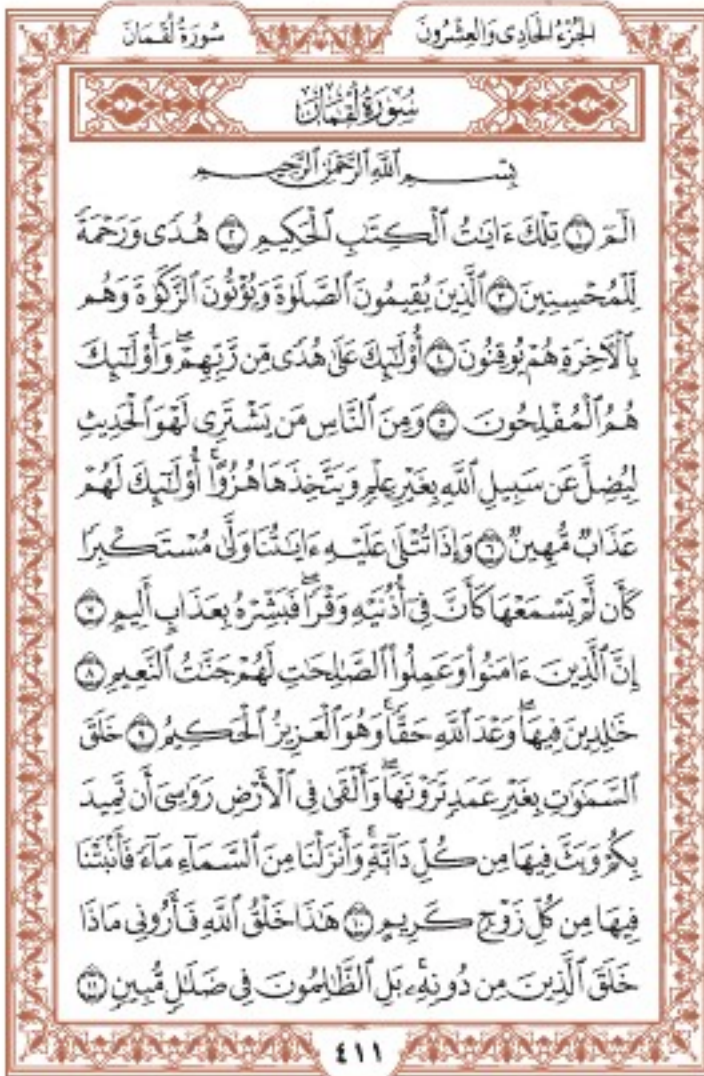 الجُزْءُ الحَادِى وَالعِشْرُونَ
سُورَةُ لُقْمَانَ
سُورَةُ لُقْمَانَ
بِسْمِ ٱللَّهِ ٱلرَّحْمَٰنِ ٱلرَّحِيمِ
الٓمٓ ١ تِلْكَ ءَايَٰتُ ٱلْكِتَٰبِ ٱلْحَكِيمِ ٢ هُدًى وَرَحْمَةً
لِّلْمُحْسِنِينَ ٣ ٱلَّذِينَ يُقِيمُونَ ٱلصَّلَوٰةَ وَيُؤْتُونَ ٱلزَّكَوٰةَ وَهُم
بِٱلْءَاخِرَةِ هُمْ يُوقِنُونَ ٤ أُو۟لَٰٓئِكَ عَلَىٰ هُدًى مِّن رَّبِّهِمْ ۖ وَأُو۟لَٰٓئِكَ
هُمُ ٱلْمُفْلِحُونَ ٥ وَمِنَ ٱلنَّاسِ مَن يَشْتَرِى لَهْوَ ٱلْحَدِيثِ
لِيُضِلَّ عَن سَبِيلِ ٱللَّهِ بِغَيْرِ عِلْمٍ وَيَتَّخِذَهَا هُزُوًا ۚ أُو۟لَٰٓئِكَ لَهُمْ
عَذَابٌ مُّهِينٌ ٦ وَإِذَا تُتْلَىٰ عَلَيْهِ ءَايَٰتُنَا وَلَّىٰ مُسْتَكْبِرًا
كَأَن لَّمْ يَسْمَعْهَا كَأَنَّ فِىٓ أُذُنَيْهِ وَقْرًا ۖ فَبَشِّرْهُ بِعَذَابٍ أَلِيمٍ ٧
إِنَّ ٱلَّذِينَ ءَامَنُوا۟ وَعَمِلُوا۟ ٱلصَّٰلِحَٰتِ لَهُمْ جَنَّٰتُ ٱلنَّعِيمِ ٨
خَٰلِدِينَ فِيهَا ۖ وَعْدَ ٱللَّهِ حَقًّا ۚ وَهُوَ ٱلْعَزِيزُ ٱلْحَكِيمُ ٩ خَلَقَ
ٱلسَّمَٰوَٰتِ بِغَيْرِ عَمَدٍ تَرَوْنَهَا ۖ وَأَلْقَىٰ فِى ٱلْأَرْضِ رَوَٰسِىَ أَن تَمِيدَ
بِكُمْ وَبَثَّ فِيهَا مِن كُلِّ دَآبَّةٍ ۚ وَأَنزَلْنَا مِنَ ٱلسَّمَآءِ مَآءً فَأَنۢبَتْنَا
فِيهَا مِن كُلِّ زَوْجٍ كَرِيمٍ ١٠ هَٰذَا خَلْقُ ٱللَّهِ فَأَرُونِى مَاذَا
خَلَقَ ٱلَّذِينَ مِن دُونِهِۦ ۚ بَلِ ٱلظَّٰلِمُونَ فِى ضَلَٰلٍ مُّبِينٍ ١١
٤١١